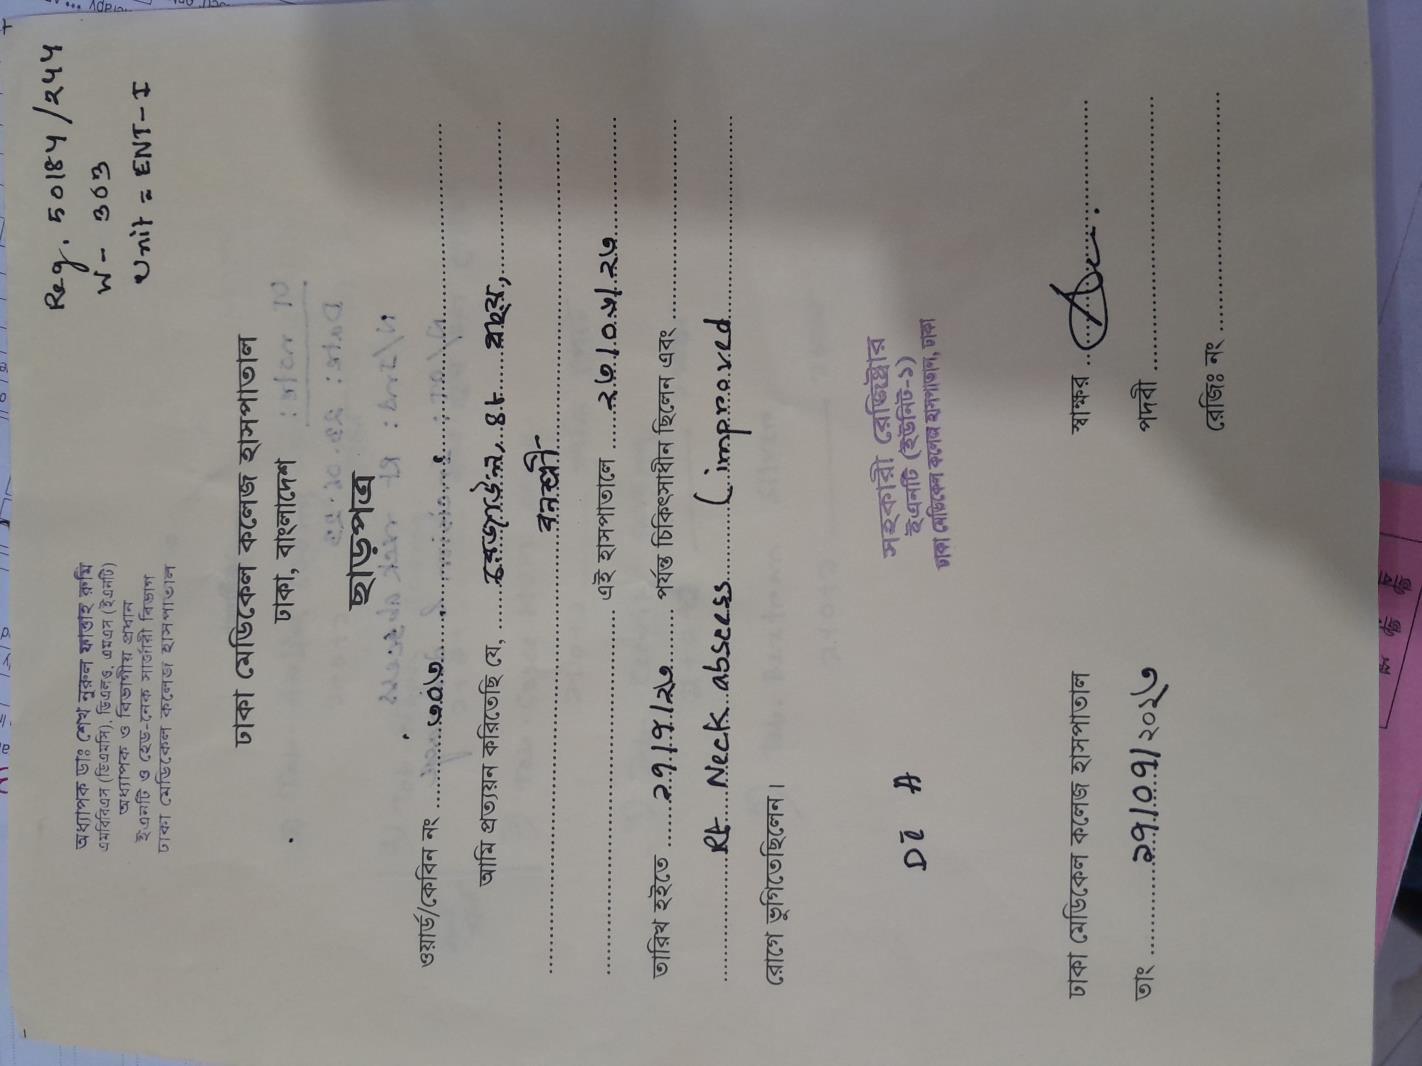 Reg. 50184/244
W- 303
Unit = ENT-I
অধ্যাপক ডাঃ শেখ নুরুল ফাত্তাহ রুমি
এমবিবিএস (ডিএমসি), ডিএলও, এমএস (ইএনটি)
অধ্যাপক ও বিভাগীয় প্রধান
ইএনটি ও হেড-নেক সার্জারী বিভাগ
ঢাকা মেডিকেল কলেজ হাসপাতাল
ঢাকা মেডিকেল কলেজ হাসপাতাল
ঢাকা, বাংলাদেশ
ছাড়পত্র
ওয়ার্ড/কেবিন নং ........৩০৩........
আমি প্রত্যয়ন করিতেছি যে, ........ ৪৮ ....বছর,........
........বনশ্রী........
........ এই হাসপাতালে ......২৩/০৬/২৩........
তারিখ হইতে ......২৭/৭/২৩...... পর্যন্ত চিকিৎসাধীন ছিলেন এবং ........
........Rt Neck abscess (improved........
রোগে ভুগিতেছিলেন।
সহকারী রেজিষ্ট্রার
ইএনটি (ইউনিট-১)
ঢাকা মেডিকেল কলেজ হাসপাতাল, ঢাকা
ঢাকা মেডিকেল কলেজ হাসপাতাল
তাং ........২৭/০৭/২০২৩
স্বাক্ষর ........
পদবী ........
রেজিঃ নং ........